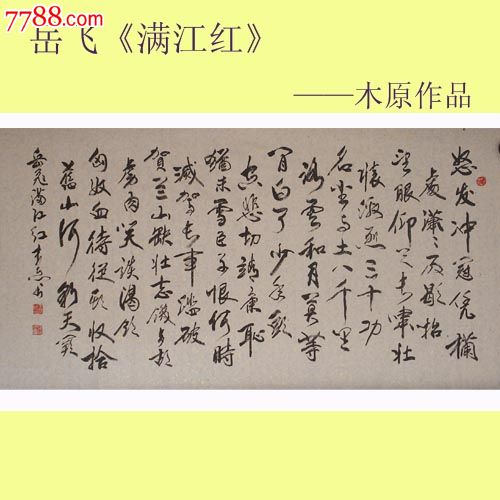 7788.com
中国收藏热线
岳飞《满江红》
——木原作品
怒发冲冠凭欄
處潇潇雨歇抬
望眼仰天长嘯壮
懷激烈三十功
名尘与土八千里
路雲和月莫等
闲白了少年头
空悲切靖康耻
猶未雪臣子恨何時
滅駕长車踏破
賀兰山缺壮志饥餐胡
虏肉笑谈渴飲
匈奴血待從头收拾
舊山河朝天闕
岳飛满江红